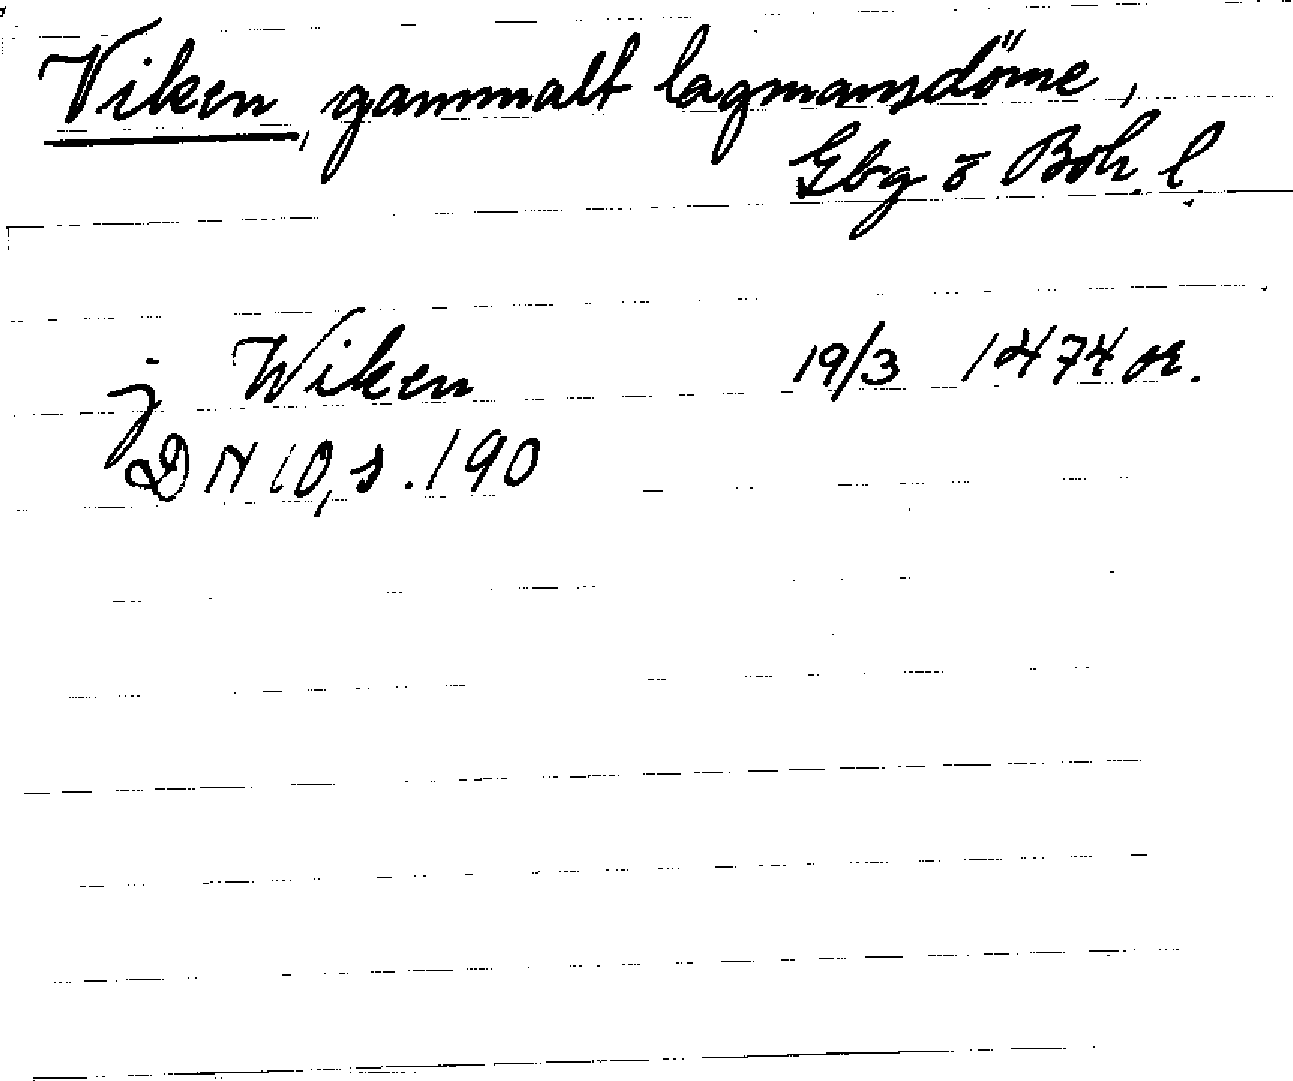 Viken, gammalt lagmansdöme,
Gbg o Boh. l.
j Wiken 19/3 1474 or.
DN 10, s. 190